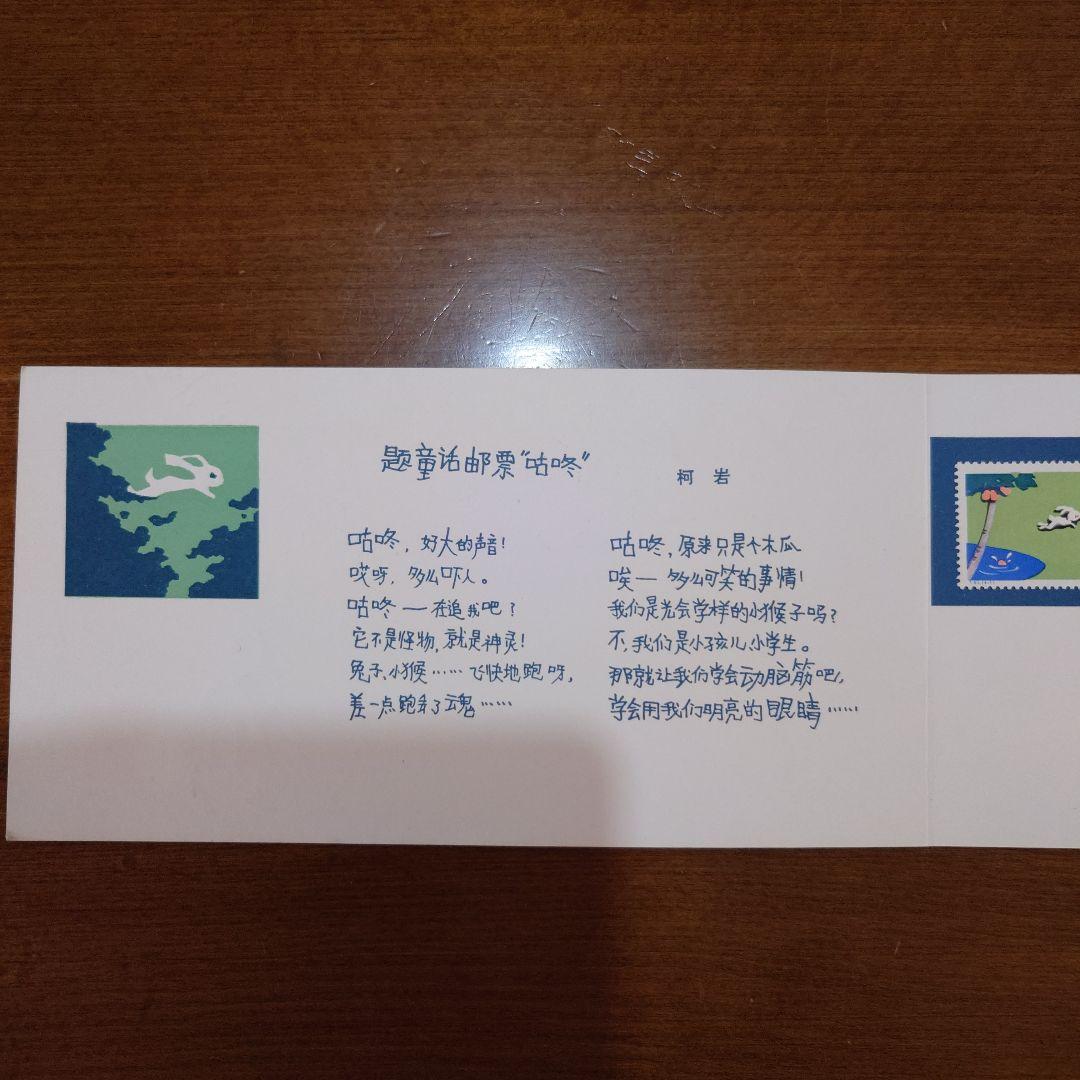 题童话邮票“咕咚”
柯 岩
咕咚，好大的声音！
哎呀，多么吓人。
咕咚——在追我吧？
它不是怪物，就是神灵！
兔子、小猴……飞快地跑呀，
差一点跑丢了魂……
咕咚，原来只是个木瓜
唉——多么可笑的事情！
我们是光会学样的小猴子吗？
不，我们是小孩儿、小学生。
那就让我们学会动脑筋吧，
学会用我们明亮的眼睛……